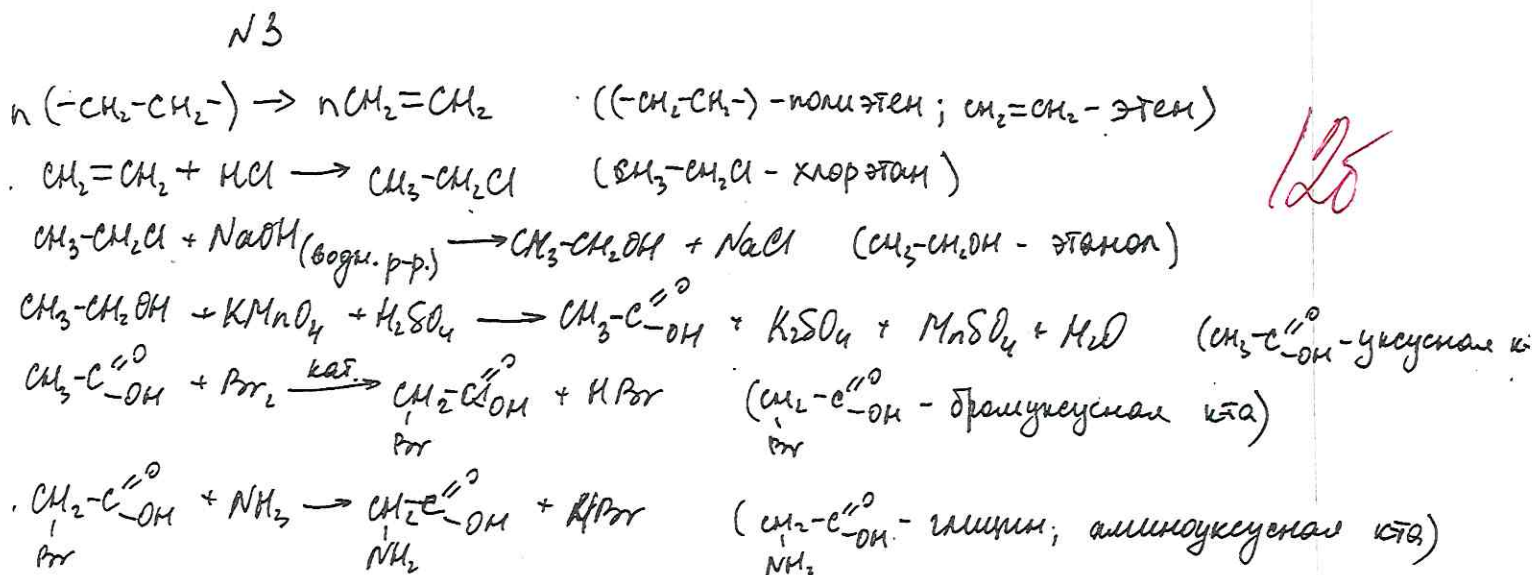 N3
n(-CH₂-CH₂-) → nCH₂=CH₂ ((-CH₂-CH₂-) - полиэтен; CH₂=CH₂ - этен)
12б
. CH₂=CH₂ + HCl → CH₃-CH₂Cl (CH₃-CH₂Cl - хлорэтан)
CH₃-CH₂Cl + NaOH (водн. р-р.) → CH₃-CH₂OH + NaCl (CH₃-CH₂OH - этанол)
CH₃-CH₂OH + KMnO₄ + H₂SO₄ → CH₃-C=O-OH + K₂SO₄ + MnSO₄ + H₂O (CH₃-C=O-OH - уксусная к-
CH₃-C=O-OH + Br₂ кат. → CH₂-C=O-OH + HBr (CH₂-C=O-OH - бромуксусная к-та)
Br Br
. CH₂-C=O-OH + NH₃ → CH₂-C=O-OH + HBr (CH₂-C=O-OH - глицин; аминоуксусная к-та)
Br NH₂ NH₂